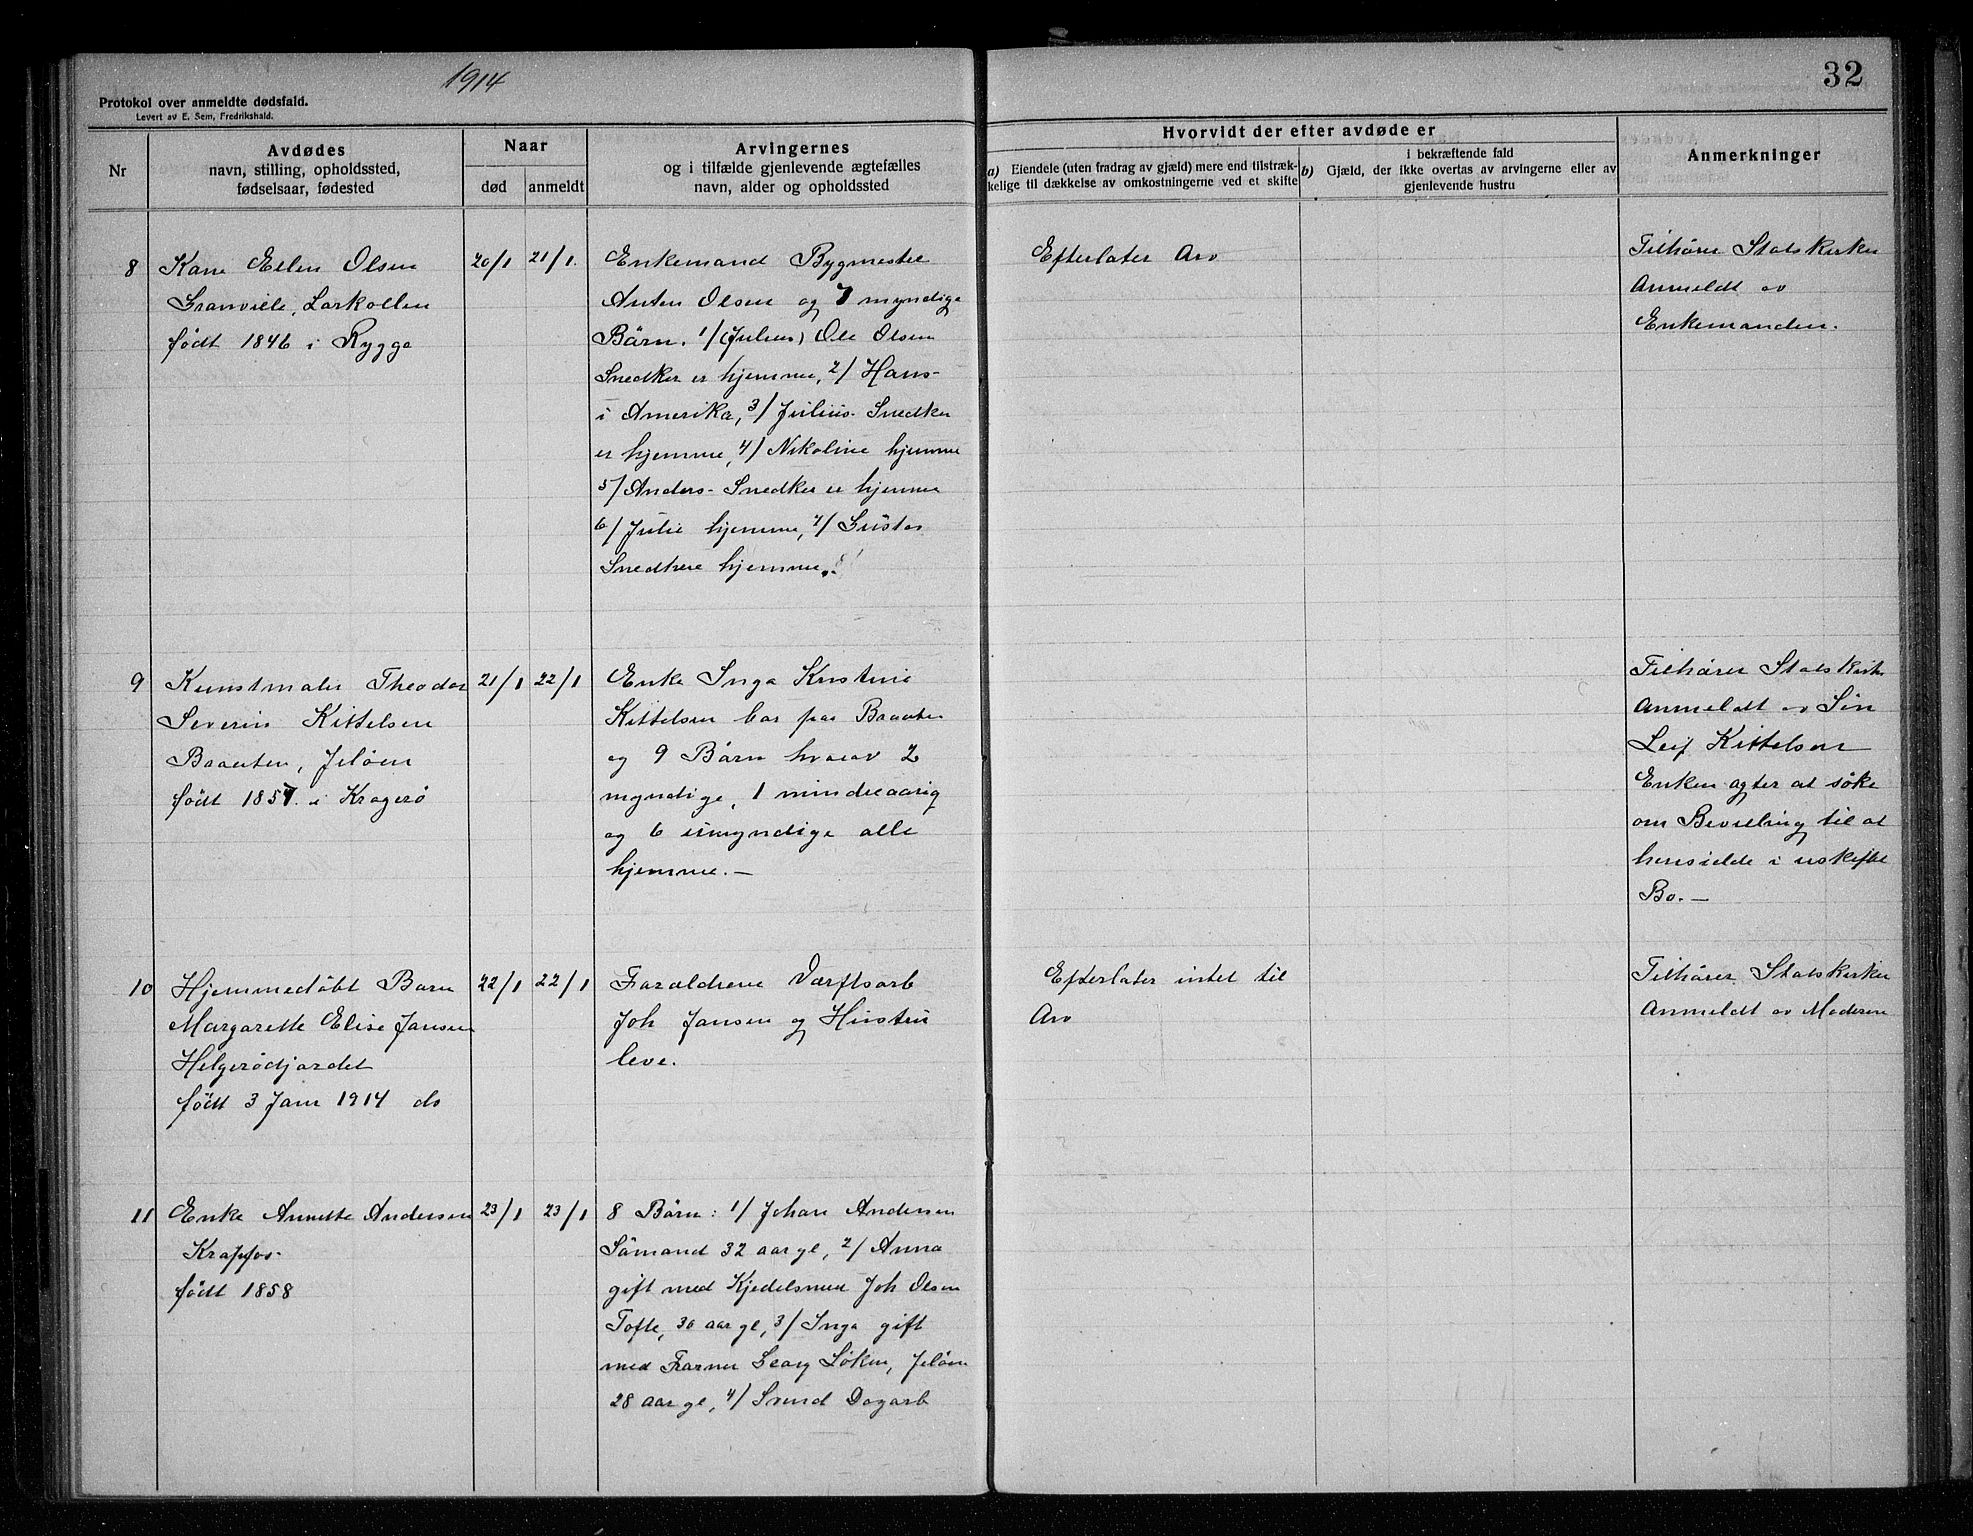 1914
32
Protokol over anmeldte dødsfald.
Levert av E. Sem, Fredrikshald.
Nr
Avdødes
navn, stilling, opholdssted,
fødselsaar, fødested
Naar
død
anmeldt
Arvingernes
og i tilfælde gjenlevende ægtefælles
navn, alder og opholdssted
Hvorvidt der efter avdøde er
a) Eiendele (uten fradrag av gjæld) mere end tilstræk-
kelige til dækkelse av omkostningerne ved et skifte
i bekræftende fald
b) Gjæld, der ikke overtas av arvingerne eller av
gjenlevende hustru
Anmerkninger
8
Kare Ellen Olsen
Granviele, Larkollen
født 1846 i Rygge
20/1
21/1.
Enkemand Bygmester
Anton Olsen og 7 myndige
Börn. 1/ (Julius) Ole Olsen
Snedker er hjemme, 2/ Hans-
i Amerika, 3/ Julius- Snedker
er hjemme, 4/ Nikoline hjemme
5/ Anders- Snedker er hjemme
6/ Julie hjemme, 7/ Gustav
Snedkere hjemme.
Efterlater Arv
Tilhörer Statskirken
Anmeldt av
Enkemanden.
9
Kunstmaler Theodor
Severin Kittelsen
Braaten, Jelöen
født 1857. i Kragerö
21/1
22/1
Enke Inga Kristine
Kittelsen bor paa Braaten
og 9 Börn hvorav 2
myndige, 1 mindreaarig
og 6 umyndige alle
hjemme. —
Tilhörer Statskirken
Anmeldt av Sön
Leif Kittelsen
Enken agter at söke
om Bevilling til at
hensidde i uskiftet
Bo. —
10
Hjemmedöbt Barn
Margarette Elise Jansen
Helgerödjordet
født 3 Janu 1914 do
22/1
22/1
Forældrene Værftsarb
Joh Jansen og Hustru
leve.
Efterlater intet til
Arv
Tilhörer Statskirken
Anmeldt av Moderen
11
Enke Annette Andersen
Krapfos-
født 1858
23/1
23/1
8 Börn: 1/ Johan Andersen
Sömand 32 aar gl, 2/ Anna
gift med Kjedelsmed Joh Olsen
Tofte, 30 aar gl, 3/ Inga gift
med Georg Löken, Jelöen
28 aar gl, 4/ Svend Dagarb